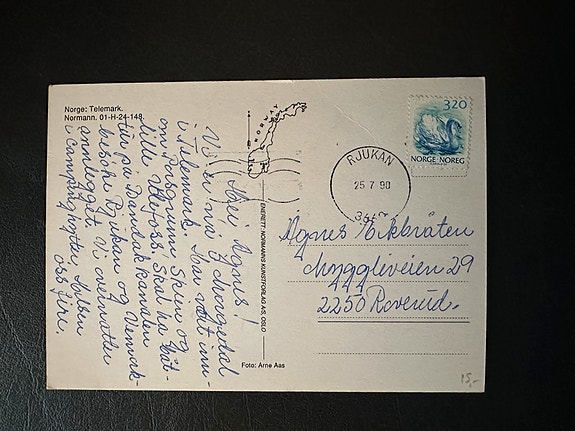 Norge: Telemark.
Normann. 01-H-24-148.
Hei Agnes!
Vi er nå g
i Telemark. Har vært inn-
om Porsgrunn Skien og
lille Ulefoss. Skal ha båt-
tur på Bandak kanalen
besøke Rjukan og Vemork-
anlegget. Vi overnatter
i campinghytter. Hilsen
oss fire.
NORWAY
ENERETT: NORMANNS KUNSTFORLAG A/S, OSLO
Foto: Arne Aas
RJUKAN
25 7 90
320
NORGE NOREG
Agnes Eikbråten
Myggliveien 29
2250 Roverud.
15,-